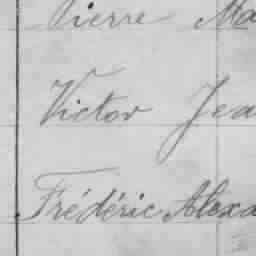 Pierre Ma
Victor Jea
Frédéric Alexa